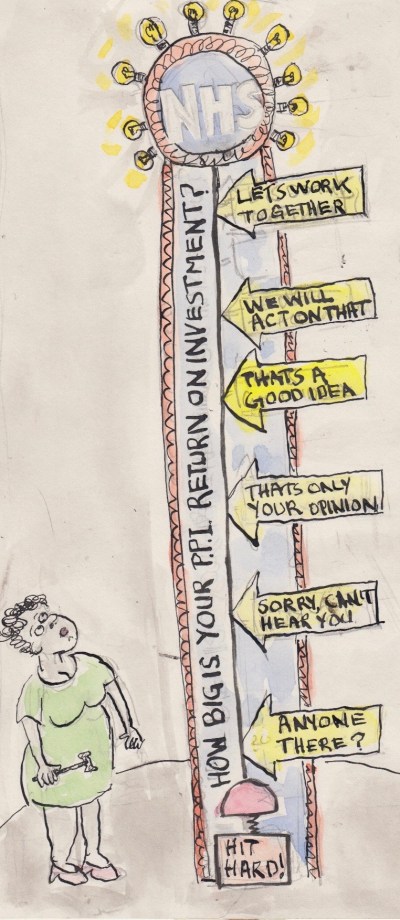 NHS
HOW BIG IS YOUR P.P.I. RETURN ON INVESTMENT?
LETS WORK
TOGETHER
WE WILL
ACT ON THAT
THATS A
GOOD IDEA
THATS ONLY
YOUR OPINION
SORRY, CAN'T
HEAR YOU
ANYONE
THERE?
HIT
HARD!